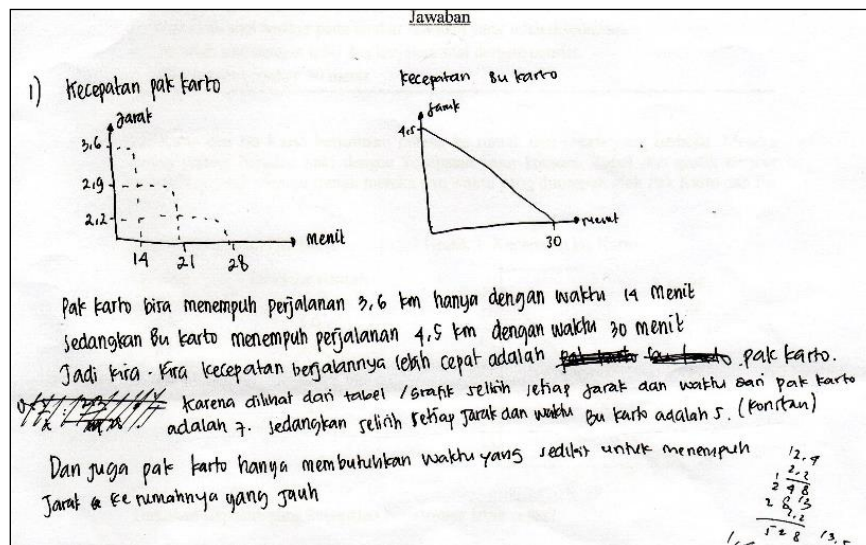 Jawaban
1) Kecepatan pak karto
kecepatan Bu karto
Jarak
3,6
2,9
2,2
14 21 28
menit
Jarak
4,5
30
menit
Pak karto bisa menempuh perjalanan 3,6 km hanya dengan waktu 14 menit
Sedangkan Bu karto menempuh perjalanan 4,5 km dengan waktu 30 menit
Jadi kira-kira kecepatan berjalannya lebih cepat adalah pak karto.
karena dilihat dari tabel /grafik selisih setiap jarak dan waktu dari pak karto
adalah 7. sedangkan selisih setiap jarak dan waktu Bu karto adalah 5. (konstan)
Dan juga pak karto hanya membutuhkan waktu yang sedikit untuk menempuh
Jarak ke rumahnya yang jauh
12,4
2,2
2 4 8
5 2 8